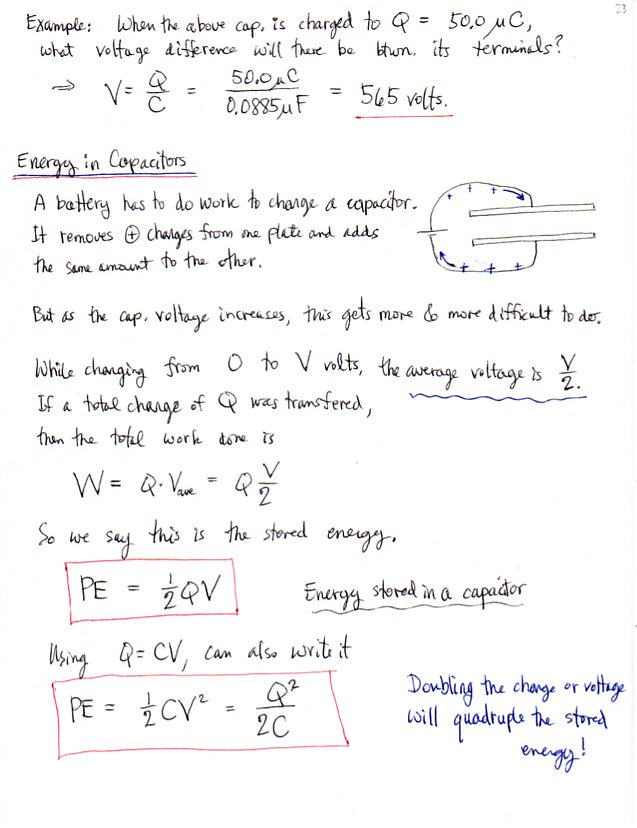 23
Example: When the above cap. is charged to Q = 50.0 μC,
what voltage difference will there be btwn. its terminals?
⇒ V = Q/C = 50.0 μC / 0.0885 μF = 565 volts.
Energy in Capacitors
A battery has to do work to charge a capacitor.
It removes ⊕ charges from one plate and adds
the same amount to the other.
+ + +
+ + +
But as the cap. voltage increases, this gets more & more difficult to do.
While charging from 0 to V volts, the average voltage is V/2.
If a total charge of Q was transfered,
then the total work done is
W = Q·Vave = Q V/2
So we say this is the stored energy.
PE = 1/2 QV
Energy stored in a capacitor
Using Q = CV, can also write it
PE = 1/2 CV² = Q²/2C
Doubling the charge or voltage
will quadruple the stored
energy!